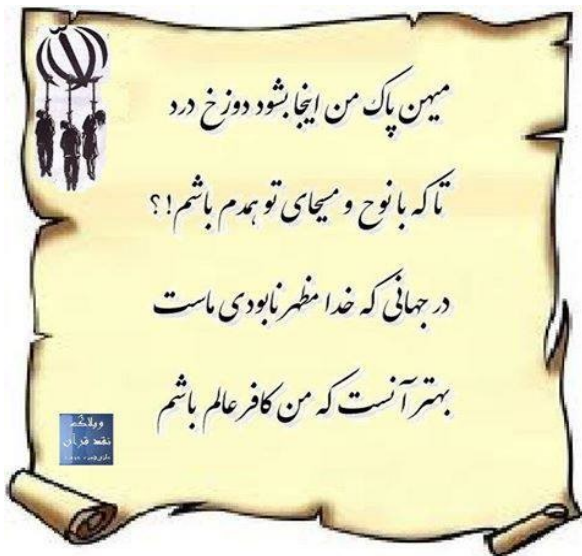 میهن پاک من اینجا بشود دوزخ درد
تا که با نوح و مسیحای تو همدم باشم!؟
در جهانی که خدا مظهر نابودی ماست
بهتر آنست که من کافر عالم باشم
وبلاگ
نقد قرآن